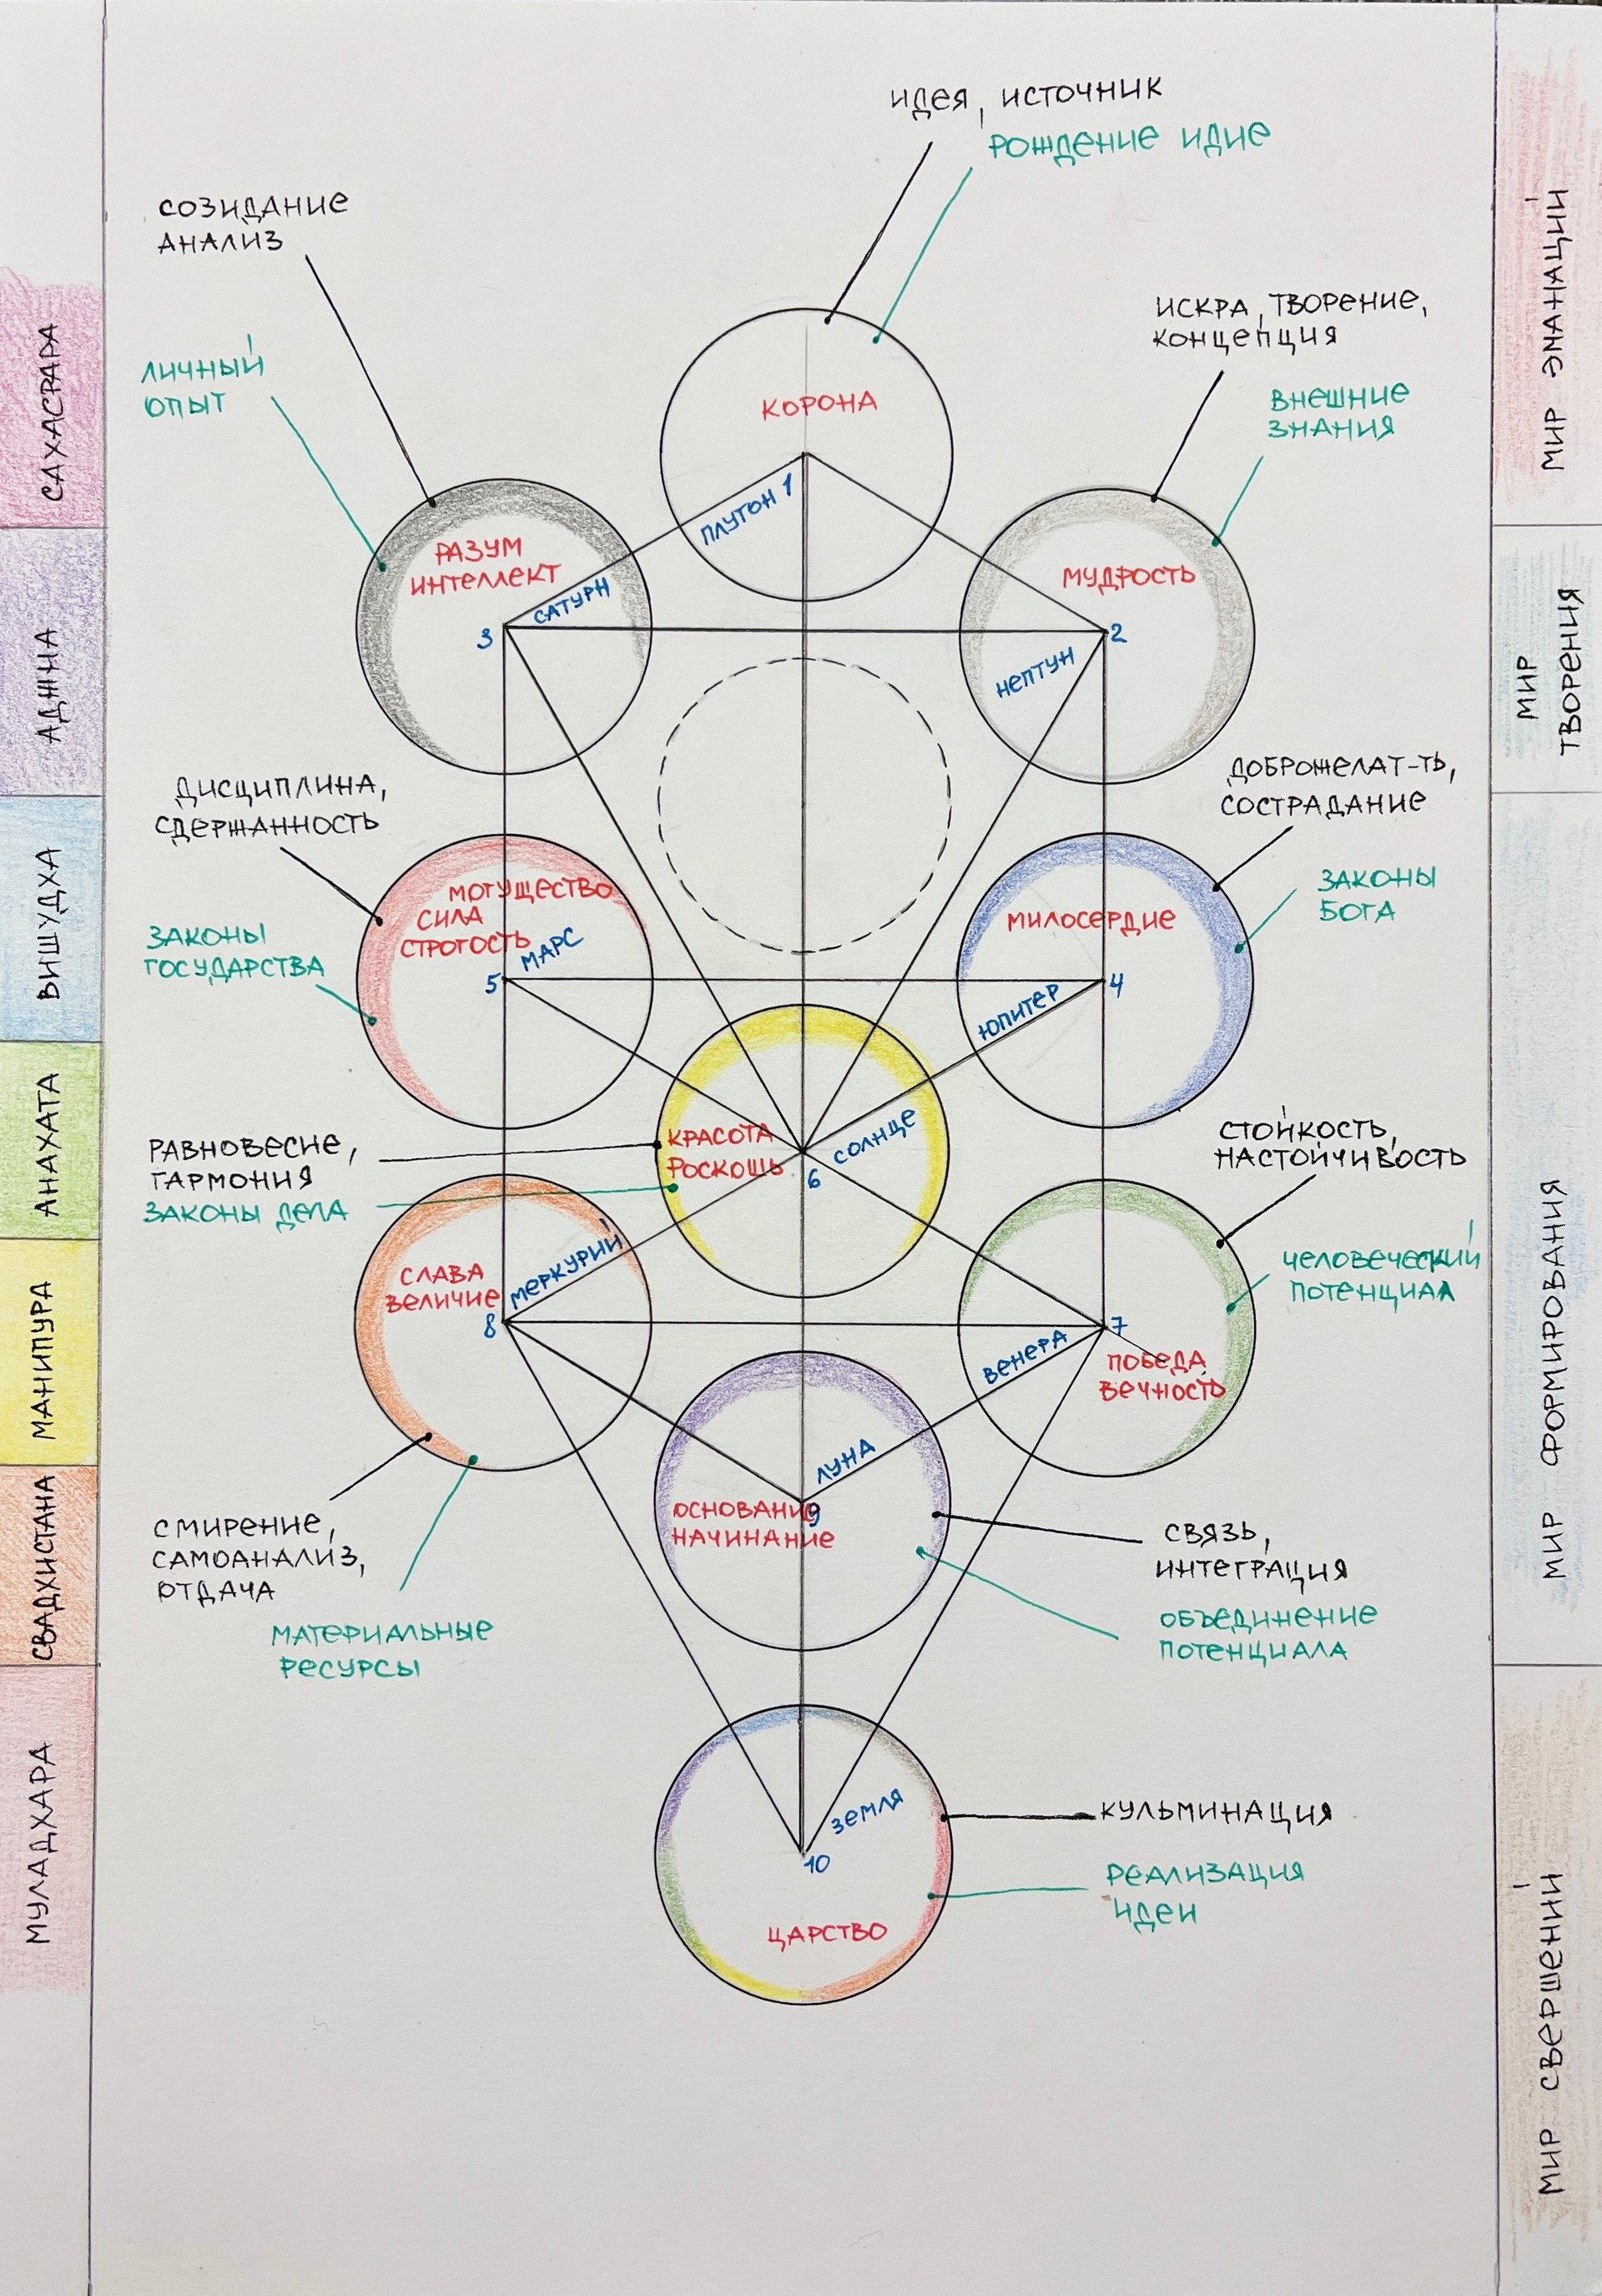 ИДЕЯ, ИСТОЧНИК
РОЖДЕНИЕ ИДИЕ
СОЗИДАНИЕ
АНАЛИЗ
ЛИЧНЫЙ
ОПЫТ
ИСКРА, ТВОРЕНИЕ,
КОНЦЕПЦИЯ
ВНЕШНИЕ
ЗНАНИЯ
КОРОНА
ПЛУТОН 1
РАЗУМ
ИНТЕЛЛЕКТ
САТУРН
3
МУДРОСТЬ
2
НЕПТУН
ДИСЦИПЛИНА,
СДЕРЖАННОСТЬ
ЗАКОНЫ
ГОСУДАРСТВА
ДОБРОЖЕЛАТ-ТЬ,
СОСТРАДАНИЕ
ЗАКОНЫ
БОГА
МОГУЩЕСТВО
СИЛА
СТРОГОСТЬ
МАРС
5
МИЛОСЕРДИЕ
4
ЮПИТЕР
РАВНОВЕСИЕ,
ГАРМОНИЯ
ЗАКОНЫ ДЕЛА
КРАСОТА
РОСКОШЬ
СОЛНЦЕ
6
СТОЙКОСТЬ,
НАСТОЙЧИВОСТЬ
ЧЕЛОВЕЧЕСКИЙ
ПОТЕНЦИАЛ
СЛАВА
ВЕЛИЧИЕ
МЕРКУРИЙ
8
7
ВЕНЕРА
ПОБЕДА
ВЕЧНОСТЬ
СМИРЕНИЕ,
САМОАНАЛИЗ,
ОТДАЧА
МАТЕРИАЛЬНЫЕ
РЕСУРСЫ
ЛУНА
9
ОСНОВАНИЕ
НАЧИНАНИЕ
СВЯЗЬ,
ИНТЕГРАЦИЯ
ОБЪЕДИНЕНИЕ
ПОТЕНЦИАЛА
ЗЕМЛЯ
10
ЦАРСТВО
КУЛЬМИНАЦИЯ
РЕАЛИЗАЦИЯ
ИДЕИ
САХАСРАРА
АДЖНА
ВИШУДХА
АНАХАТА
МАНИПУРА
СВАДХИСТАНА
МУЛАДХАРА
МИР ЭНАНАЦИЙ
МИР
ТВОРЕНИЯ
МИР ФОРМИРОВАНИЯ
МИР СВЕРШЕНИЙ